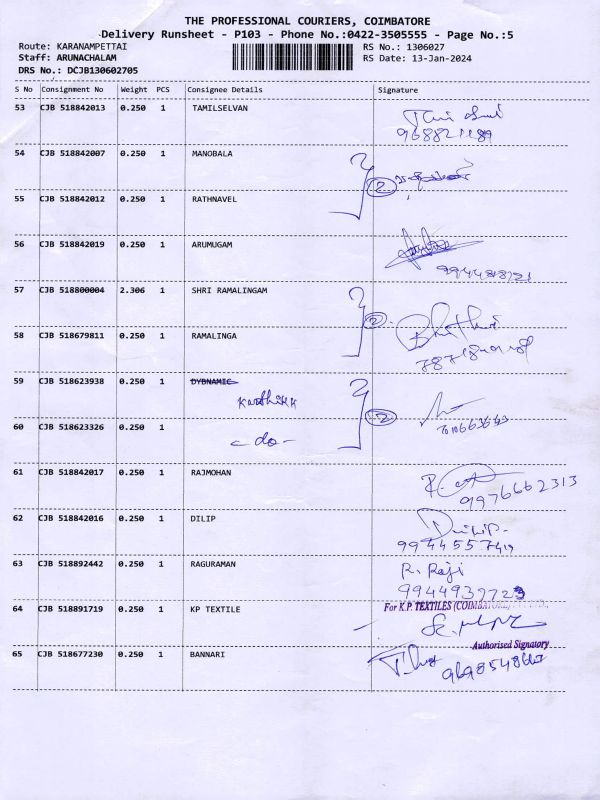 THE PROFESSIONAL COURIERS, COIMBATORE
Delivery Runsheet - P103 - Phone No.:0422-3505555 - Page No.:5
Route: KARANAMPETTAI RS No.: 1306027
Staff: ARUNACHALAM RS Date: 13-Jan-2024
DRS No.: DCJB130602705
S No Consignment No Weight PCS Consignee Details Signature
53 CJB 518842013 0.250 1 TAMILSELVAN
54 CJB 518842007 0.250 1 MANOBALA
2
55 CJB 518842012 0.250 1 RATHNAVEL
56 CJB 518842019 0.250 1 ARUMUGAM
57 CJB 518800004 2.306 1 SHRI RAMALINGAM
2
58 CJB 518679811 0.250 1 RAMALINGA
59 CJB 518623938 0.250 1 DYBNAMIC
Karthikk
2
60 CJB 518623326 0.250 1
- do -
61 CJB 518842017 0.250 1 RAJMOHAN
9976662313
62 CJB 518842016 0.250 1 DILIP
Dilip
63 CJB 518892442 0.250 1 RAGURAMAN
R. Raji
64 CJB 518891719 0.250 1 KP TEXTILE
For K.P. TEXTILES (COIMBATORE)
Authorised Signatory
65 CJB 518677230 0.250 1 BANNARI